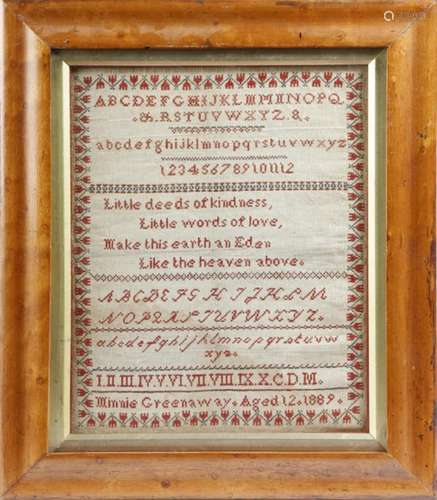 ABCDEFGHIJKLMNOPQ
&.RSTUVWXYZ.&.
abcdefghijklmnopqrstuvwxyz
123456789101112
Little deeds of kindness,
Little words of love,
Make this earth an Eden
Like the heaven above.
ABCDEFGHIJKLM
NOPQRSTUVWXYZ.
abcdefghijklmnopqrstuvw
xyz.
I.II.III.IV.V.VI.VII.VIII.IX.X.C.D.M.
Minnie Greenaway. Aged 12. 1889.